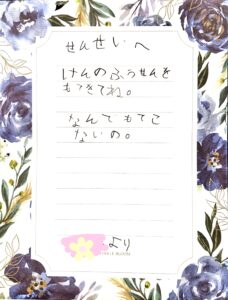 せんせいへ
けんのふうせんを
もてきてね。
なんてもてこ
ないの。
より